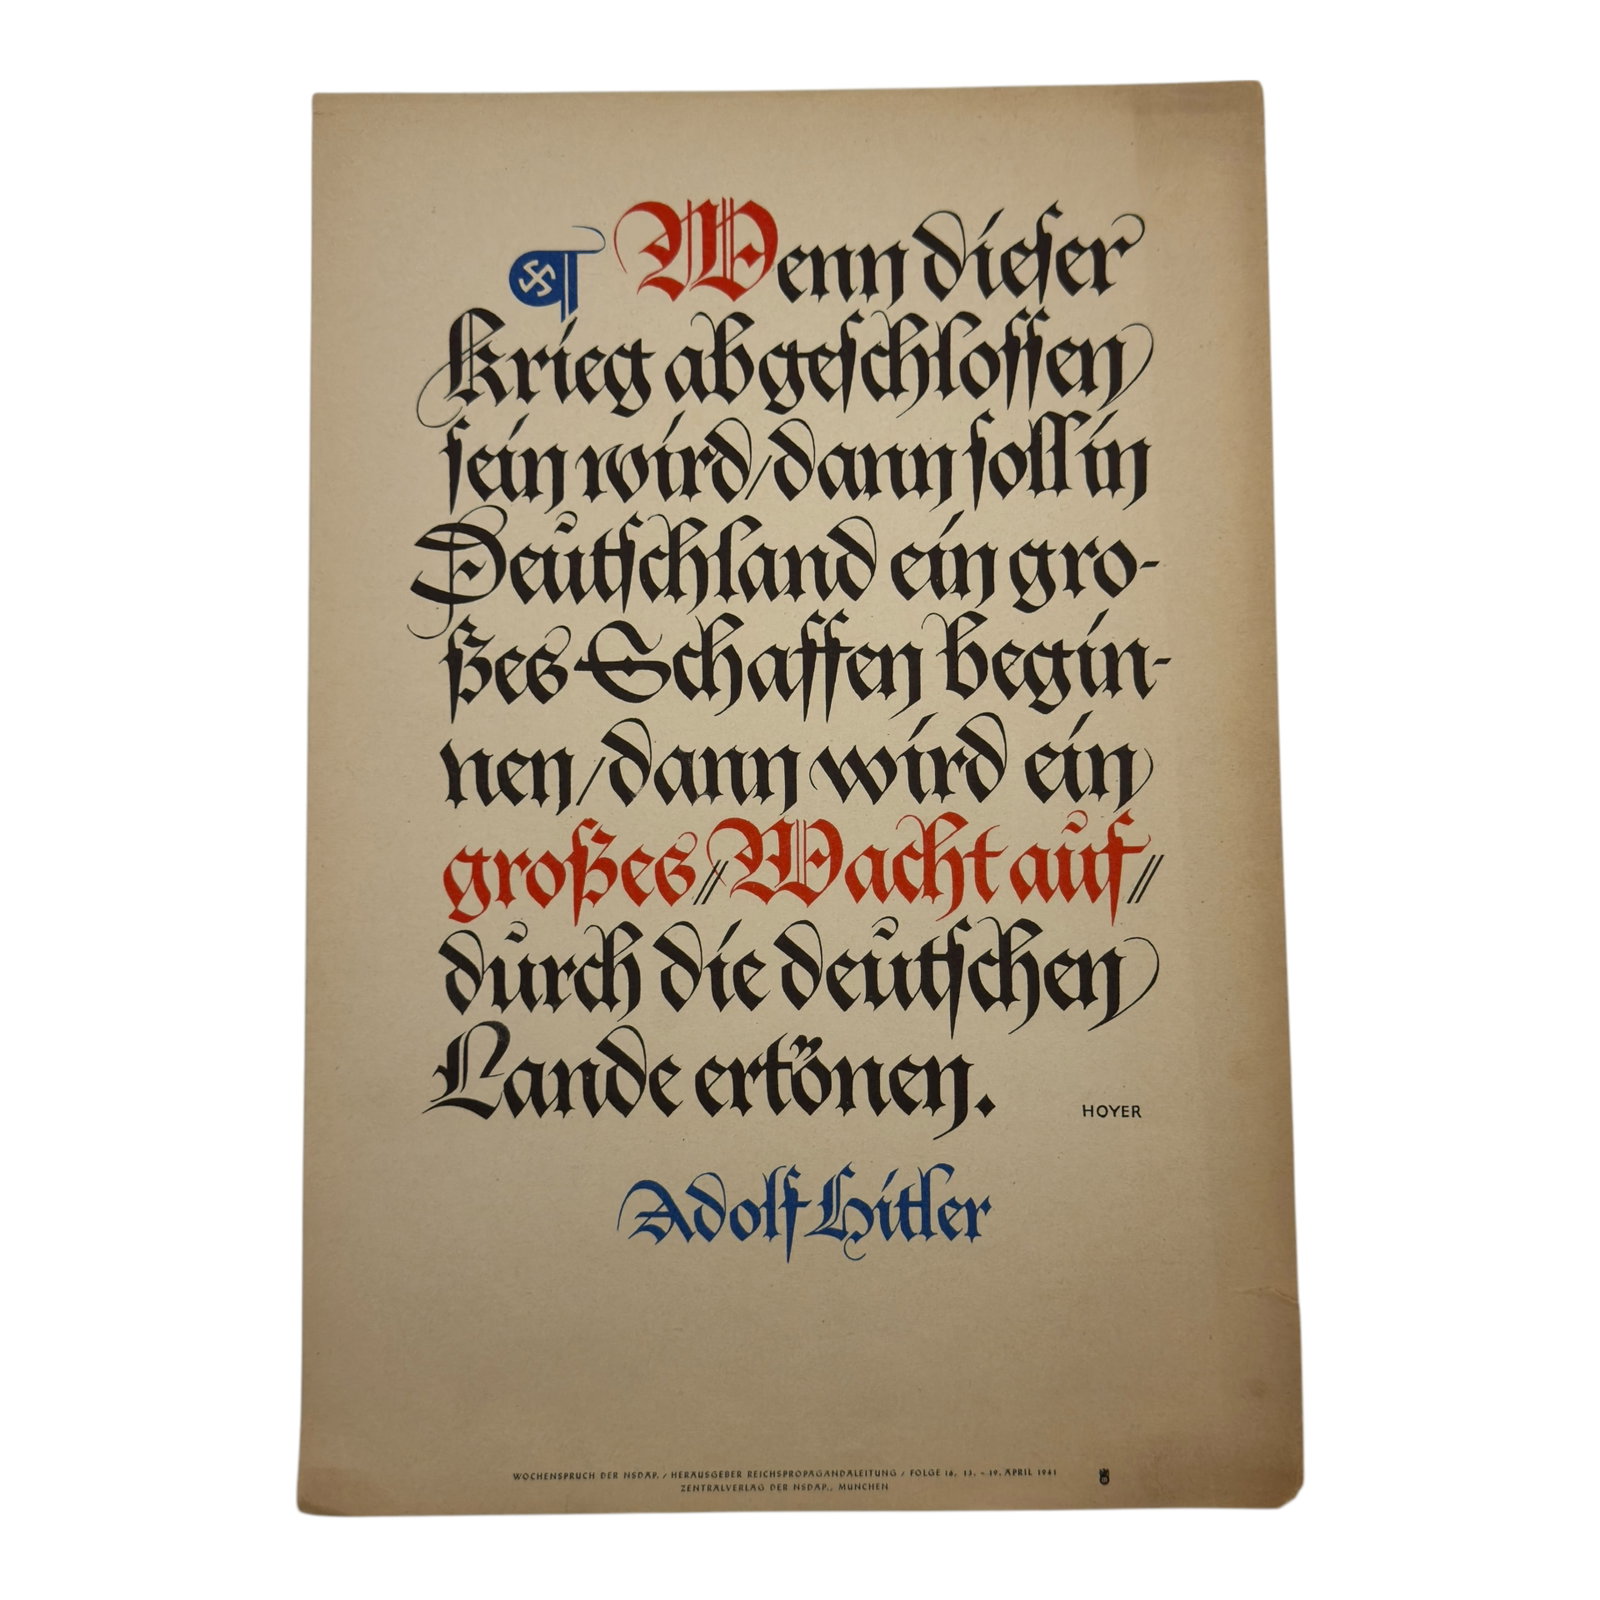 Wenn dieser
Krieg abgeschlossen
sein wird/dann soll in
Deutschland ein gro-
ßes Schaffen begin-
nen/dann wird ein
großes „Wacht auf“
durch die deutschen
Lande ertönen.
HOYER
Adolf Hitler
WOCHENSPRUCH DER NSDAP. / HERAUSGEBER REICHSPROPAGANDALEITUNG / FOLGE 16, 13. - 19. APRIL 1941
ZENTRALVERLAG DER NSDAP., MÜNCHEN